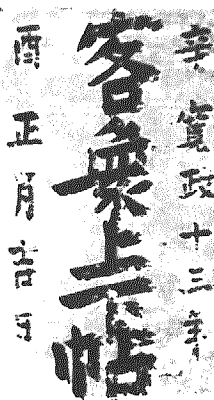 辛寛政十三年
客衆上下帖
酉正月吉日